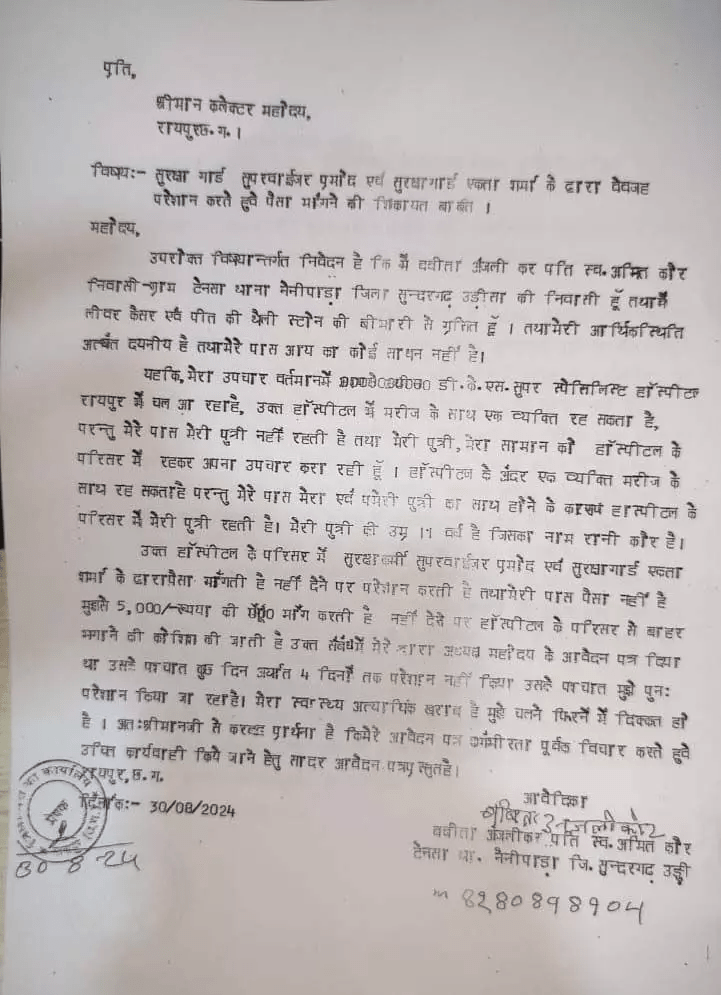 प्रति,
श्रीमान कलेक्टर महोदय,
रायपुर छ.ग.।
विषय:- सुरक्षा गार्ड सुपरवाईजर प्रमोद एवं सुरक्षागार्ड एकता शर्मा के द्वारा वेवजह
परेशान करते हुवे पैसा माँगने की शिकायत बाबत ।
महोदय,
उपरोक्त विषयान्तर्गत निवेदन है कि मैं ववीता अंजली कर पति स्व.अमित कौर
निवासी-ग्राम टेनसा थाना नैनीपाड़ा जिला सुन्दरगढ़ उड़ीसा की निवासी हूँ तथामैं
लीवर कैंसर एवं पीत की थैली स्टोन की बीमारी से ग्रसित हूँ । तथामेरी आर्थिकस्थिति
अत्यंत दयनीय है तथामेरे पास आय का कोई साधन नहीं है।
यहकि, मेरा उपचार वर्तमानमें डी.के.एस.सुपर स्पेसिलिस्ट हॉस्पीटल
रायपुर में चल आ रहाहै, उक्त हॉस्पीटल में मरीज के साथ एक व्यक्ति रह सकता है,
परन्तु मेरे पास मेरी पुत्री नहीं रहती है तथा मेरी पुत्री, मेरा सामान को हॉस्पीटल के
परिसर में रहकर अपना उपचार करा रही हूँ । हॉस्पीटल के अंदर एक व्यक्ति मरीज के
साथ रह सकताहै परन्तु मेरे पास मेरा एवं पमेरी पुत्री का साथ होने के कारण हास्पीटल के
परिसर में मेरी पुत्री रहती है। मेरी पुत्री की उम्र 11 वर्ष है जिसका नाम रानी कौर है।
उक्त हॉस्पीटल के परिसर में सुरक्षाकर्मी सुपरवाईजर प्रमोद एवं सुरक्षागार्ड एकता
शर्मा के द्वारापैसा माँगती है नहीं देने पर परेशान करती है तथामेरी पास पैसा नहीं है
मुझसे 5,000/-रूपया की माँग करती है नहीं देने पर हॉस्पीटल के परिसर से बाहर
भगाने की कोशिश की जाती है उक्त संबंधमें मेरे द्वारा अध्यक्ष महोदय के आवेदन पत्र दिया
था उसके पश्चात कुछ दिन अर्थात 4 दिनों तक परेशान नहीं किया उसके पश्चात मुझे पुनः
परेशान किया जा रहाहै। मेरा स्वास्थ्य अत्याधिक खराब है मुझे चलने फिरने में दिक्कत हो
है । अतःश्रीमानजी से करबद्ध प्रार्थना है किमेरे आवेदन पत्र गंभीरता पूर्वक विचार करते हुवे
उचित कार्यवाही किये जाने हेतु सादर आवेदन पत्रप्रस्तुतहै।
रायपुर, छ.ग.
दिनाँक:- 30/08/2024
30-8-24
आवेदिका
ववीता अंजलीकर पति स्व.अमित कौर
टेनसा था. नैनीपाड़ा जि.सुन्दरगढ़ उड़ी
m 8280898904